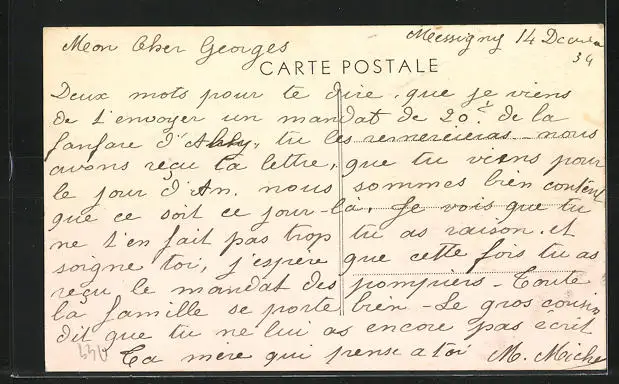 Mon Cher Georges
Messigny 14 Décem
34
CARTE POSTALE
Deux mots pour te dire, que je viens
de t'envoyer un mandat de 20.f de la
fanfare d'Ahuy, tu les remercieras - nous
avons reçu ta lettre, que tu viens pour
le jour d'An. nous sommes bien content
que ce soit ce jour-là. Je vois que tu
ne t'en fait pas trop tu as raison. et
soigne toi, j'espère que cette fois tu as
reçu le mandat des pompiers - Toute
la famille se porte bien - Le gros cousin
dit que tu ne lui as encore pas écrit
Ta mère qui pense a toi M.